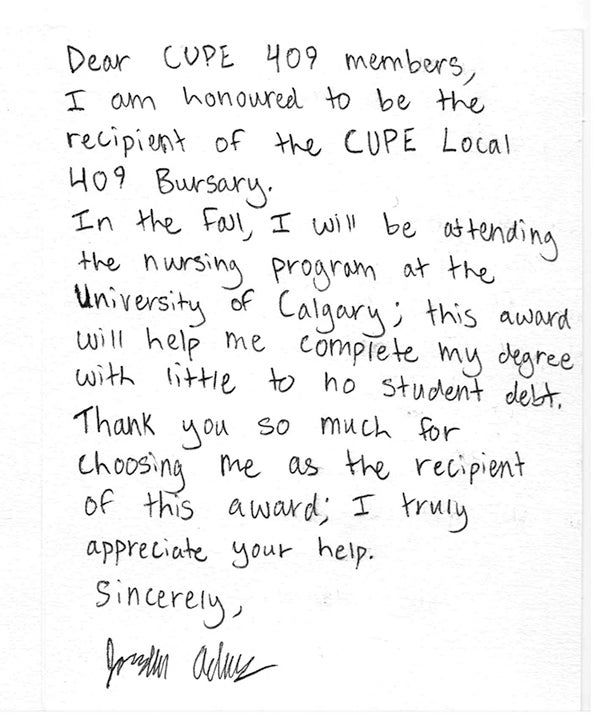 Dear CUPE 409 members,
I am honoured to be the
recipient of the CUPE Local
409 Bursary.
In the Fall, I will be attending
the nursing program at the
University of Calgary; this award
will help me complete my degree
with little to no student debt.
Thank you so much for
choosing me as the recipient
of this award; I truly
appreciate your help.
Sincerely,